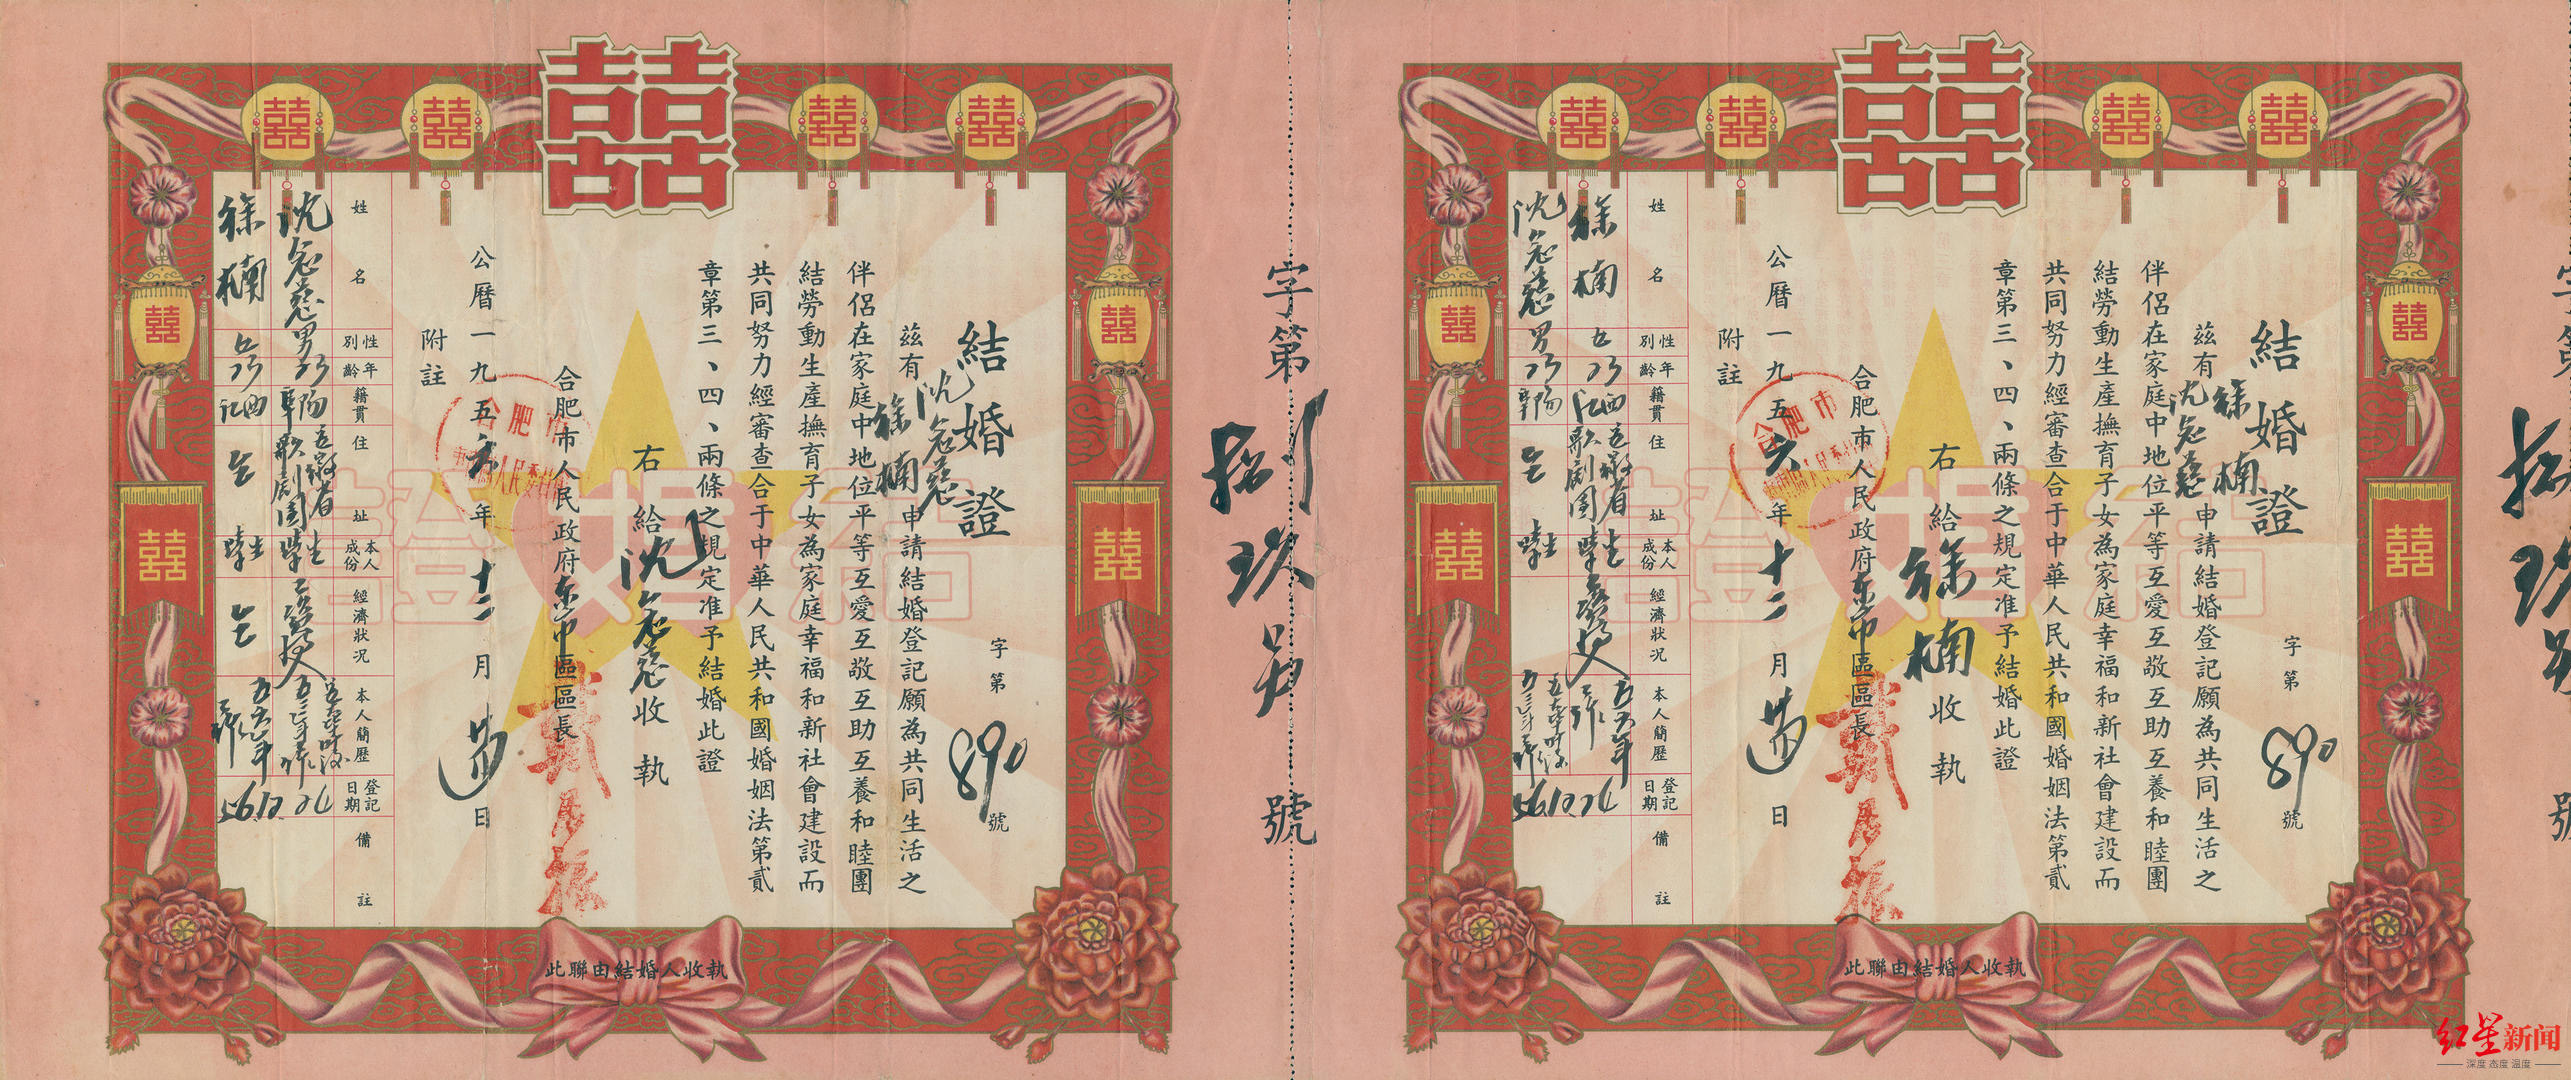 結婚證
字第890號
茲有沈念慈
徐楠申請結婚登記願為共同生活之
伴侶在家庭中地位平等互愛互敬互助互養和睦團
結勞動生產撫育子女為家庭幸福和新社會建設而
共同努力經審查合于中華人民共和國婚姻法第貳
章第三、四、兩條之規定准予結婚此證
右給沈念慈收執
合肥市人民政府東市區區長
合肥市
公曆一九五六年十二月廿四日
附註
姓名
性別
年齡
籍貫
住址
本人成份
經濟狀況
本人簡歷
登記日期
備註
沈念慈 男 阜陽 安徽省歌劇團 學生
徐楠 女 江西 仝 學生 仝
56.12.24
此聯由結婚人收執
字第捌玖另號
結婚證
字第890號
茲有徐楠
沈念慈申請結婚登記願為共同生活之
伴侶在家庭中地位平等互愛互敬互助互養和睦團
結勞動生產撫育子女為家庭幸福和新社會建設而
共同努力經審查合于中華人民共和國婚姻法第貳
章第三、四、兩條之規定准予結婚此證
右給徐楠收執
合肥市人民政府東市區區長
合肥市
公曆一九五六年十二月廿四日
附註
姓名
性別
年齡
籍貫
住址
本人成份
經濟狀況
本人簡歷
登記日期
備註
徐楠 女 江西 安徽省歌劇團 學生
沈念慈 男 阜陽 仝 學生
56.12.24
此聯由結婚人收執
字第捌玖另號
結婚證
結婚證
囍
囍
红星新闻
深度 态度 温度